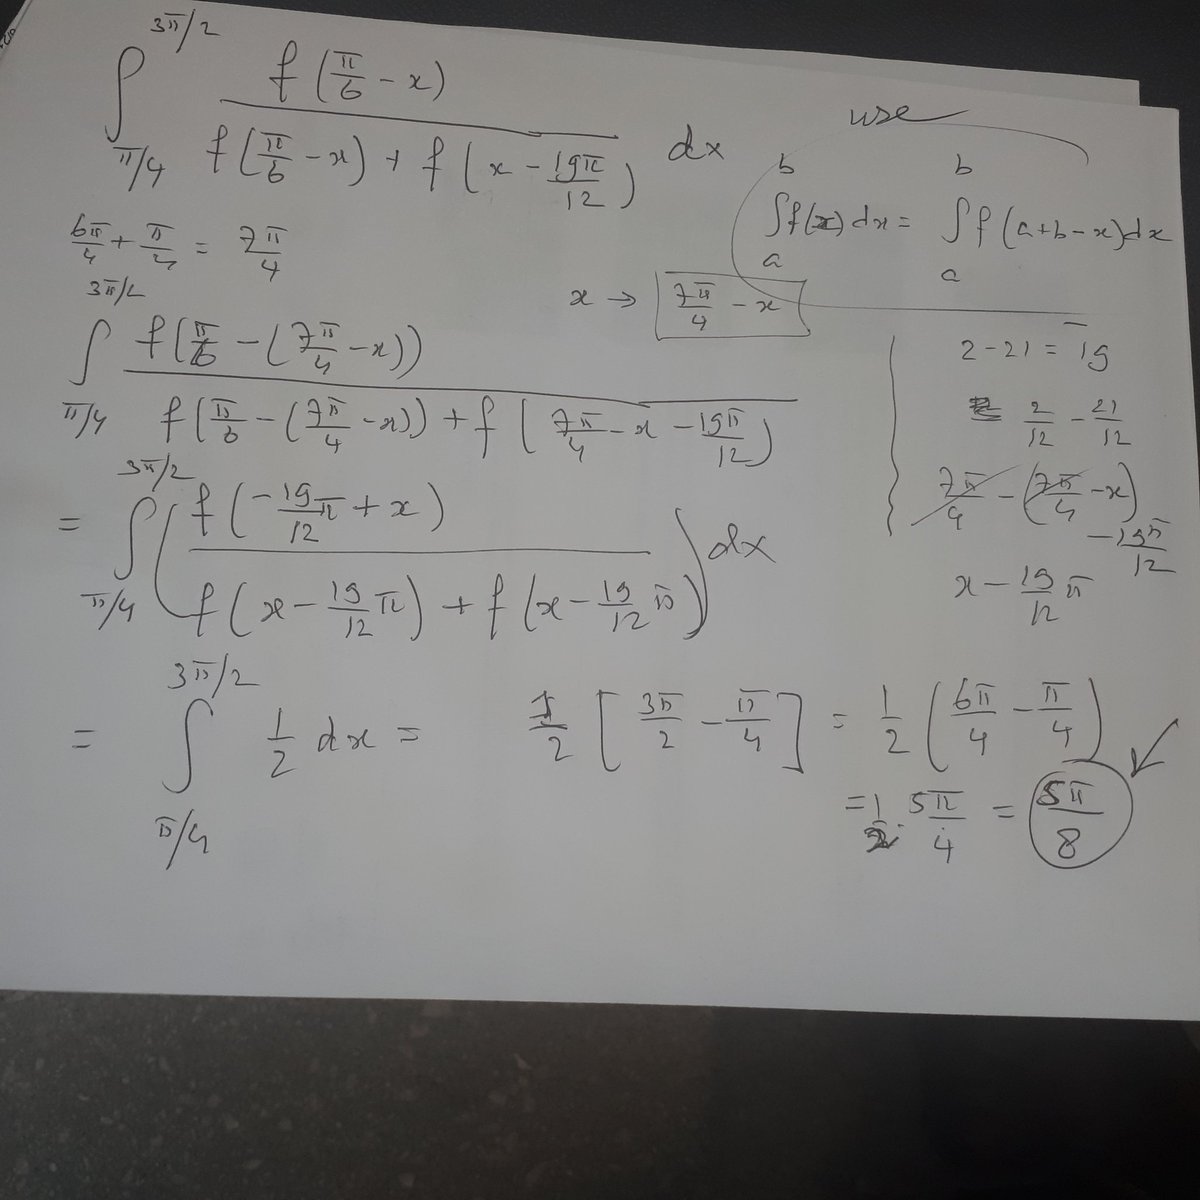 ∫_{π/4}^{3π/2} f(π/6 - x) / (f(π/6 - x) + f(x - 19π/12)) dx
use
∫_a^b f(x) dx = ∫_a^b f(a+b-x) dx
6π/4 + π/4 = 7π/4
x → 7π/4 - x
∫_{π/4}^{3π/2} f(π/6 - (7π/4 - x)) / (f(π/6 - (7π/4 - x)) + f(7π/4 - x - 19π/12))
2 - 21 = -19
2/12 - 21/12
7π/4 - (7π/4 - x) - 19π/12
x - 19/12 π
= ∫_{π/4}^{3π/2} (f(-19/12 π + x) / (f(x - 19/12 π) + f(x - 19/12 π))) dx
= ∫_{π/4}^{3π/2} 1/2 dx = 1/2 [3π/2 - π/4] = 1/2 (6π/4 - π/4)
= 1/2 · 5π/4 = 5π/8